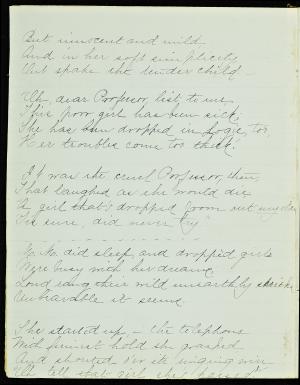 But innocent and mild
And in her soft simplicity
Out spake the tender child —
"Oh, dear Professor, list to me,
This poor girl has been sick;
She has been dropped in Logic, too,
Her troubles come too thick."
It was the cruel Professor, then,
That laughed as she would die
"A girl that's dropped from out my class
I'm sure, did never cry"
did sleep, and dropped girls
Were busy with her dreams
Loud rang their wild unearthly shrieks
Unbearable it seems.
She started up — the telephone
With firmest hold she grasped
And shouted o'er its singing wire
"Oh tell that girl she's passed"